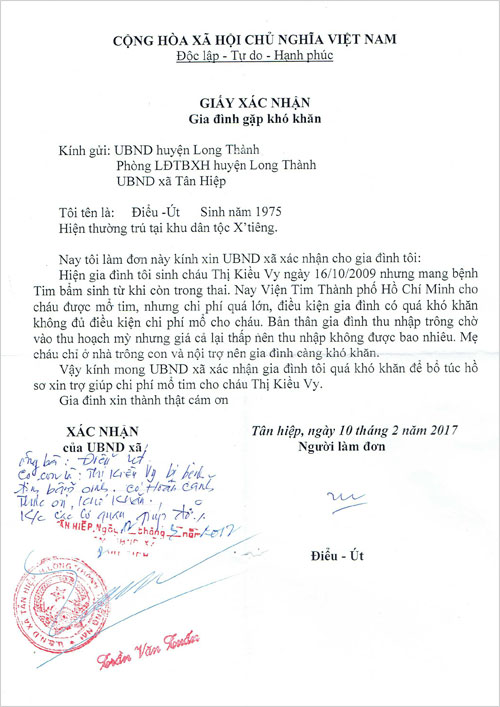 CỘNG HÒA XÃ HỘI CHỦ NGHĨA VIỆT NAM
Độc lập - Tự do - Hạnh phúc
GIẤY XÁC NHẬN
Gia đình gặp khó khăn
Kính gửi: UBND huyện Long Thành
Phòng LĐTBXH huyện Long Thành
UBND xã Tân Hiệp
Tôi tên là: Điểu -Út Sinh năm 1975
Hiện thường trú tại khu dân tộc X’tiêng.
Nay tôi làm đơn này kính xin UBND xã xác nhận cho gia đình tôi:
Hiện gia đình tôi sinh cháu Thị Kiều Vy ngày 16/10/2009 nhưng mang bệnh
Tim bẩm sinh từ khi còn trong thai. Nay Viện Tim Thành phố Hồ Chí Minh cho
cháu được mổ tim, nhưng chi phí quá lớn, điều kiện gia đình có quá khó khăn
không đủ điều kiện chi phí mổ cho cháu. Bản thân gia đình thu nhập trông chờ
vào thu hoạch mỳ nhưng giá cả lại thấp nên thu nhập không được bao nhiêu. Mẹ
cháu chỉ ở nhà trông con và nội trợ nên gia đình càng khó khăn.
Vậy kính mong UBND xã xác nhận gia đình tôi quá khó khăn để bổ túc hồ
sơ xin trợ giúp chi phí mổ tim cho cháu Thị Kiều Vy.
Gia đình xin thành thật cám ơn
XÁC NHẬN
của UBND xã
ông bà: Điểu Út
có con là: Thị Kiều Vy bị bệnh
tim bẩm sinh, có hoàn cảnh
khó khăn.
K/c các cơ quan giúp đỡ.
TÂN HIỆP, Ngày tháng năm
U.B.N.D XÃ TÂN HIỆP
Trần Văn
Tân hiệp, ngày 10 tháng 2 năm 2017
Người làm đơn
Điểu - Út